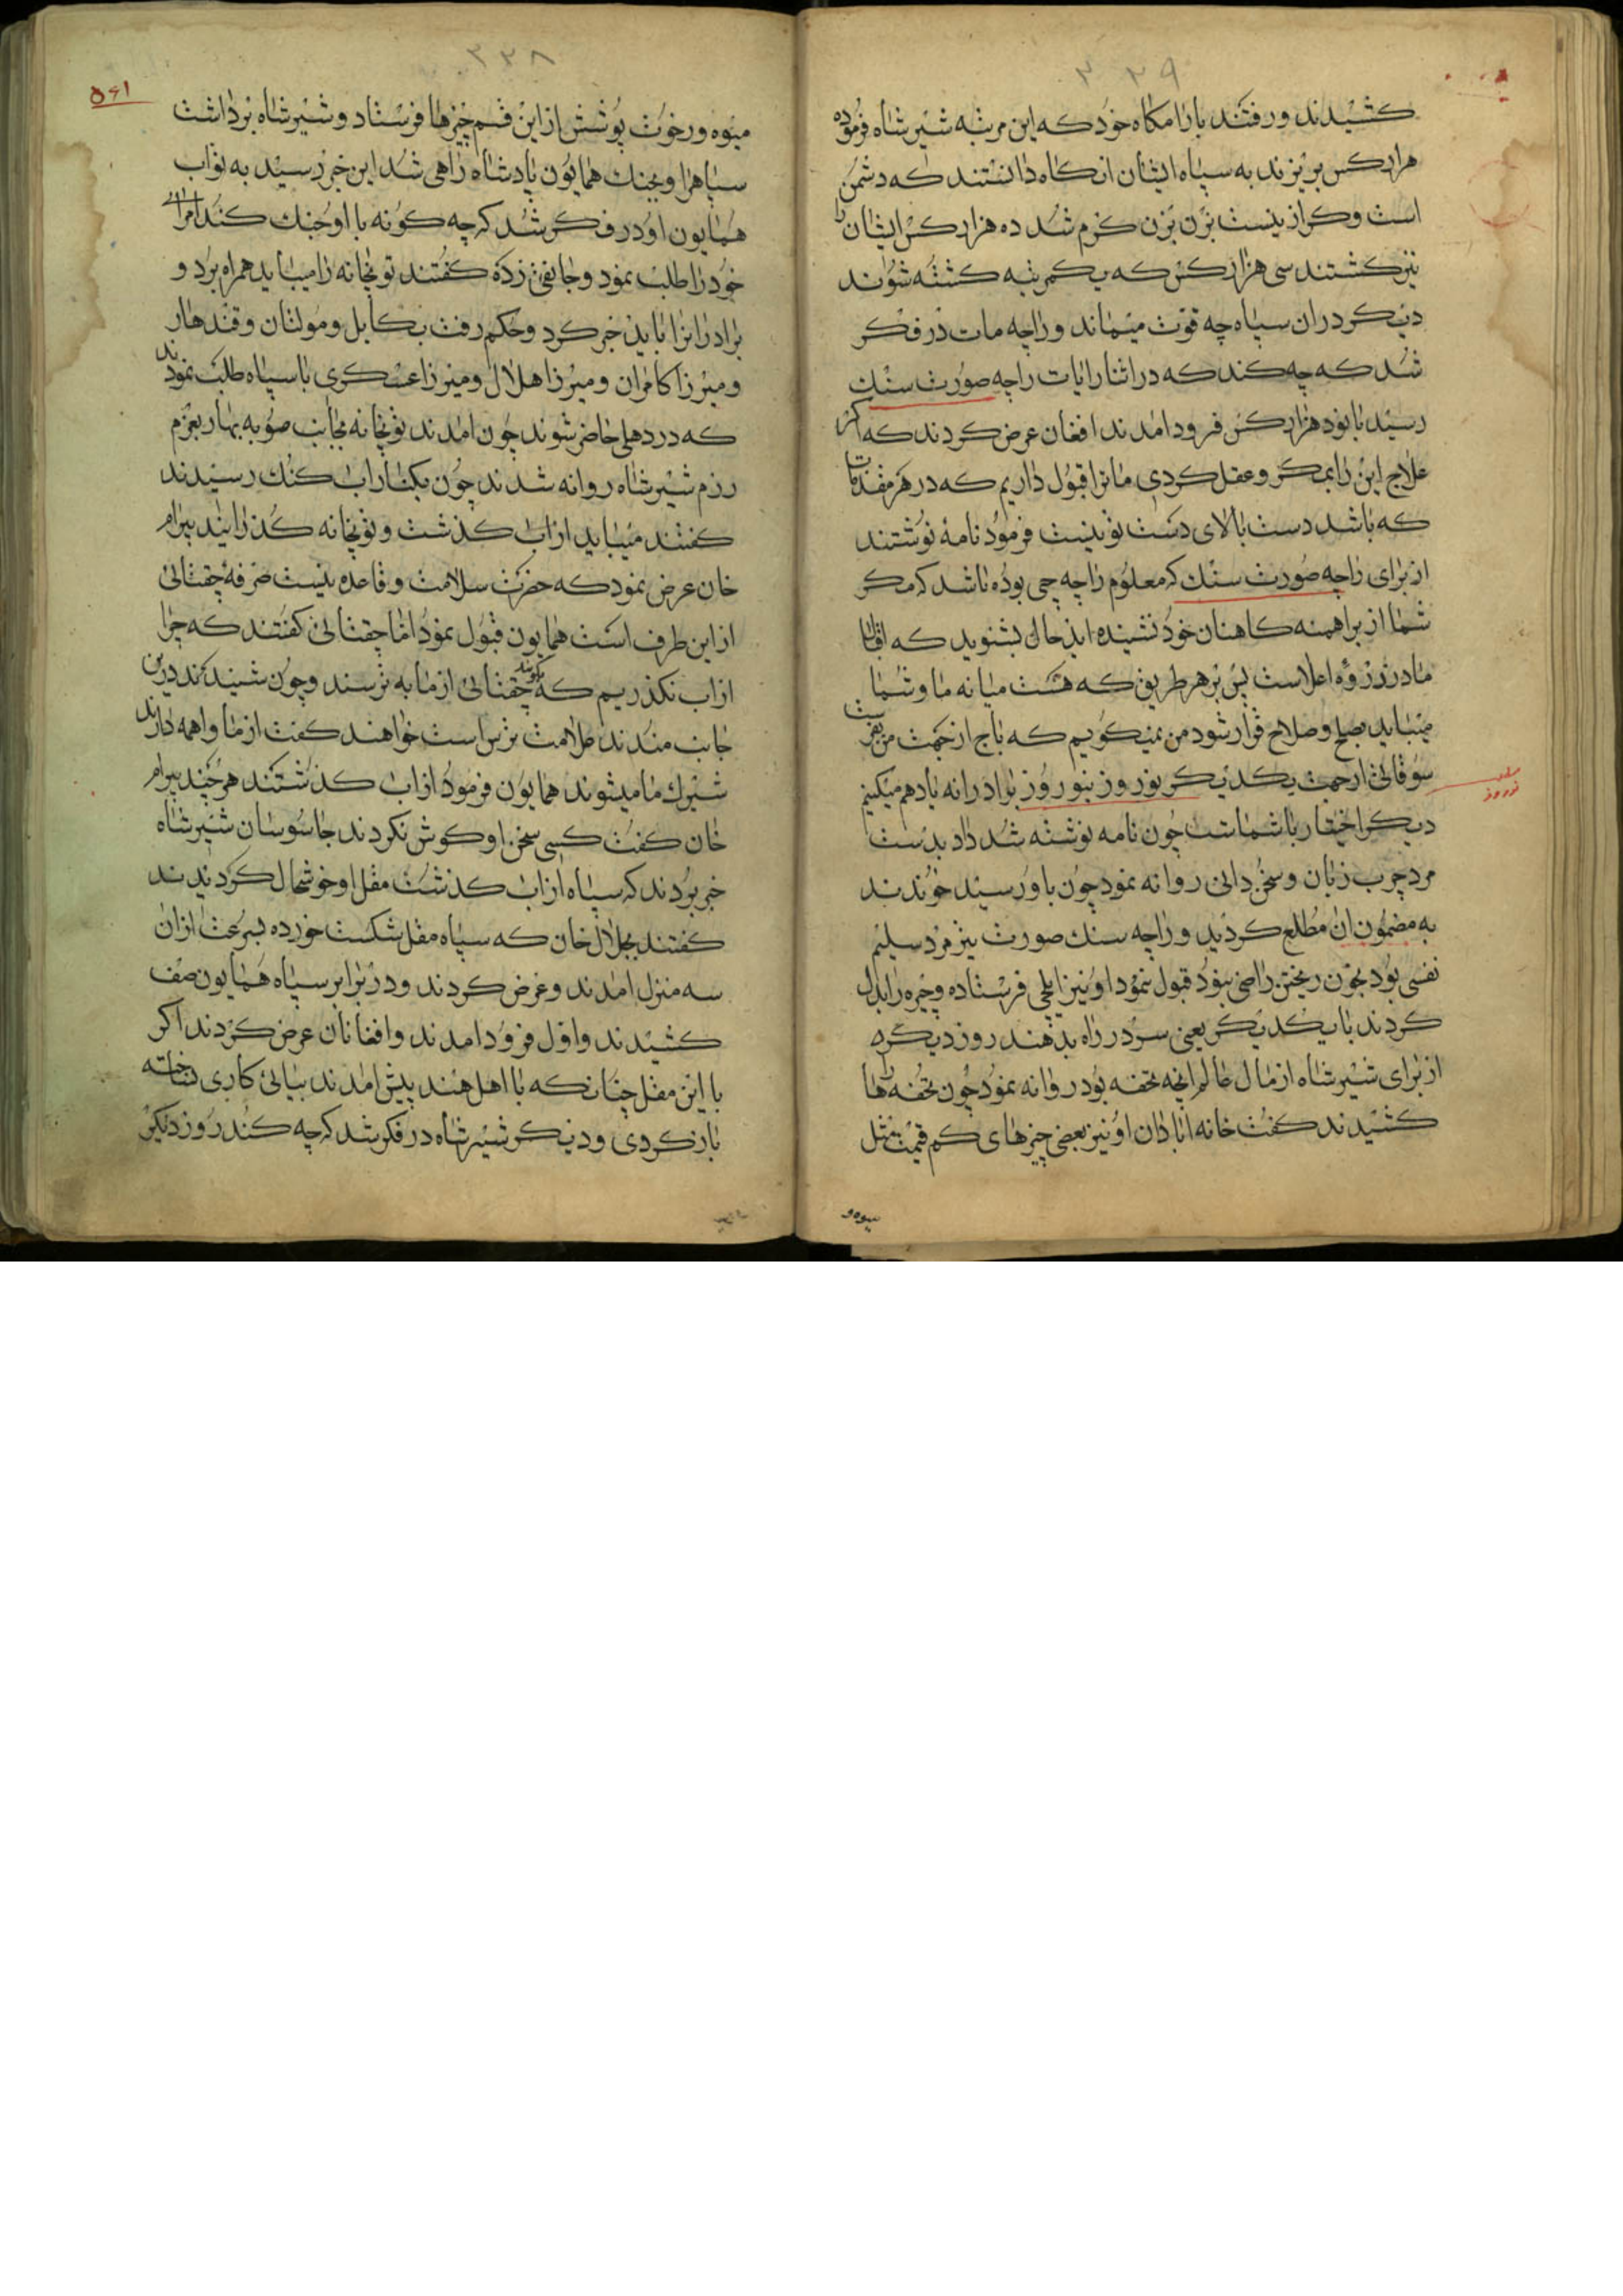 ۳۳۹
کشیدند و رفتند بارامکاه خود که این مرتبه شیر شاه فرموده
هزار کس بریزند به سپاه ایشان انکاه دانستند که دشمن
است و کراز نیست بزن بزن کرم شد ده هزار کس ایشان را
نیز کشتند سی هزار کس که بیکمرتبه کشته شوند
دیکر دران سپاه چه قوت میماند و راجه مات در فکر
شد که چه کند که در اثنا رایات راجه صورت سنک
رسید با نود هزار کس فرود امدند افغان عرض کردند که اکر
علاج این را بمکر و عقل کردی ما ترا قبول داریم که در هر مقدمات
که باشد دست بالای دست تو نیست فرمود نامهٔ نوشتند
از برای راجه صورت سنک که معلوم راجه جی بوده باشد که مکر
شما از براهمنه کاهنان خود نشینده اید حال بشنوید که اقبال
ما در زروه اعلاست پس بر هر طریق که هست میانه ما و شما
میباید بصلح و صلاح قرار شود من نمیکویم که باج از جهت من بفرست
سوقاتی از جهت یکدیکر نوروز بنوروز برادرانه یاد هم میکنیم
دیکر اختیار با شماست چون نامه نوشته شد داد بدست
مرد چرب زبان و سخن دانی روانه نمود چون باو رسید خوندند
به مضمون ان مطلع کردید و راجه سنک صورت نیز مرد سلیم
نفسی بود بخون ریختن راضی نبود قبول نمود او نیز ایلچی فرستاده و چیره را بدل
کردند با یکدیکر یعنی سر در راه بدهند روز دیکر
از برای شیر شاه از مال عالم انچه تحفه بود روانه نمود چون تحفه ها را
کشیدند کفت خانه ابادان او نیز بعضی چیزهای کم قیمت مثل
میوه و
۳۳۸
۵۶۱
میوه و رخوت پوشش از این قسم چیزها فرستاد و شیر شاه برداشت
سپاهرا و بجنک همایون پادشاه راهی شد این خبر رسید به نواب
همایون او در فکر شد که چه کونه با او جنک کند امرای
خود را طلب نمود و جانقی زده کفتند توپخانه را میباید همراه برد و
برادرانرا باید خبر کرد و حکم رفت بکابل و مولتان و قندهار
و میرزا کامران و میرزا هلال و میرزا عسکری با سپاه طلب نمودند
که در دهلی حاضر شوند چون امدند توپخانه بجانب صوبه بهار بعزم
رزم شیر شاه روانه شدند چون بکنار اب کنک رسیدند
کفتند میباید از اب کذشت و توپخانه کذرانید بیرام
خان عرض نمود که حضرت سلامت و قاعده نیست صرفهٔ چغتائی
از این طرف است همایون قبول نمود اما چغتائی کفتند که چرا
از اب نکذریم که کویند چغتائی از ما به ترسند و چون شنیدند درین
جانب مندند علامت ترس است خواهند کفت از ما واهمه دارند
شیرک ما میشوند همایون فرمود از اب کذشتند هر چند بیرام
خان کفت کسی سخن او کوش نکردند جاسوسان شیر شاه
خبر بردند که سپاه از اب کذشت مغل او خوشحال کردیدند
کفتند بجلال خان که سپاه مغل شکست خورده بسرعت ازان
سه منزل امدند و عرض کردند و در برابر سپاه همایون صف
کشیدند و اول فرود امدند و افغانان عرض کردند اکر
با این مغل چنانکه با اهل هند پیش امدند بیائی کاری ساخته
باز کردی و دیکر شیر شاه در فکر شد که چه کند روز دیکر